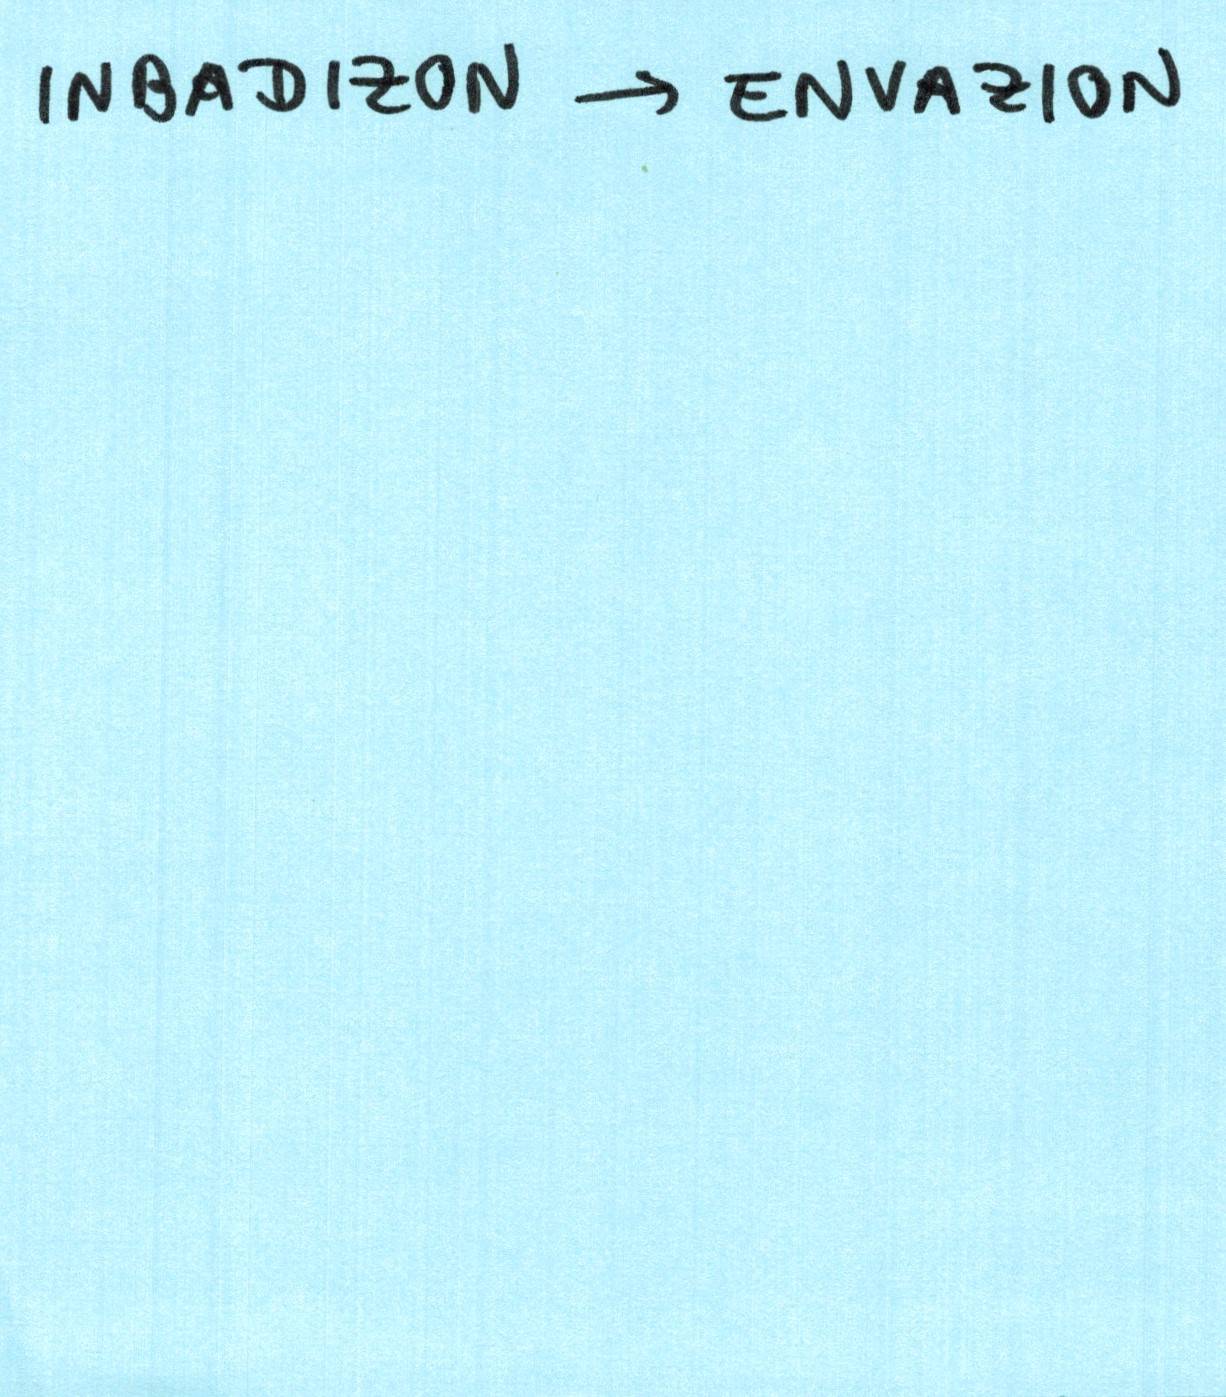 INBADIZON → ENVAZION